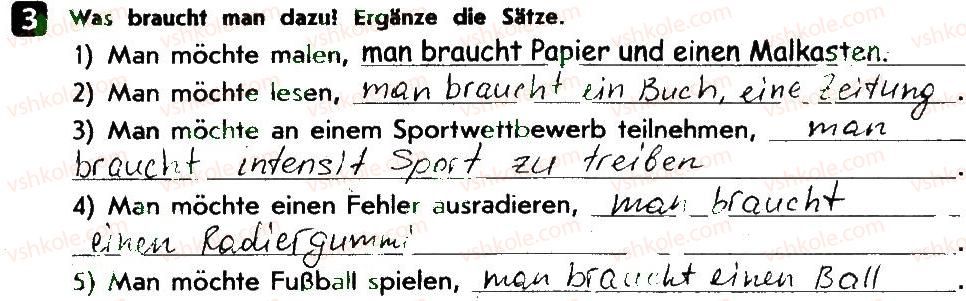 3 Was braucht man dazu? Ergänze die Sätze.
1) Man möchte malen, man braucht Papier und einen Malkasten.
2) Man möchte lesen, man braucht ein Buch, eine Zeitung.
3) Man möchte an einem Sportwettbewerb teilnehmen, man
braucht intensit Sport zu treiben.
4) Man möchte einen Fehler ausradieren, man braucht
einen Radiergummi.
5) Man möchte Fußball spielen, man braucht einen Ball.